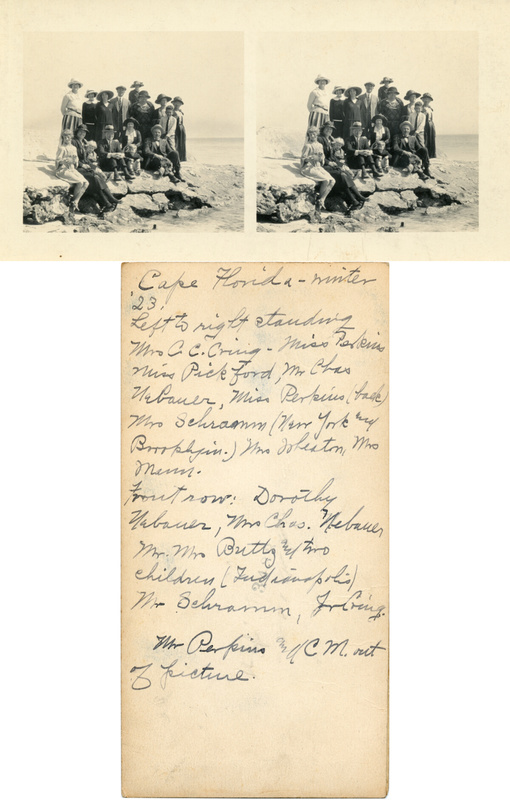 Cape Florida - winter
'23.
Left to right standing
Mrs C. C. - Miss Perkins
Miss Pickford, Mr Chas
Nebauer, Miss Perkins (back)
Mrs Schramm (New York and
Brooklyn.) Mrs Mrs
Mann.
Front row: Dorothy
Nebauer, Mrs Chas. Nebauer
Mr. Mrs Butts and two
children (Indianapolis)
Mr Schramm,
Mr Perkins and C M. out
of picture.